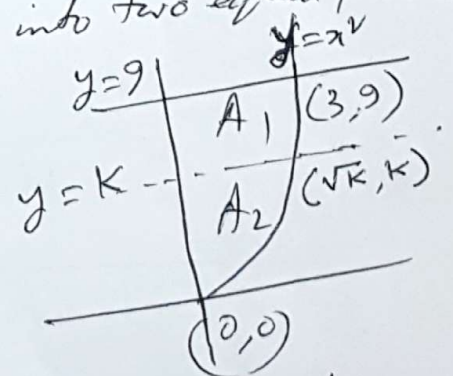 into two eq
y=x²
y=9
A₁ (3,9)
y=K
(√K, K)
A₂
(0,0)